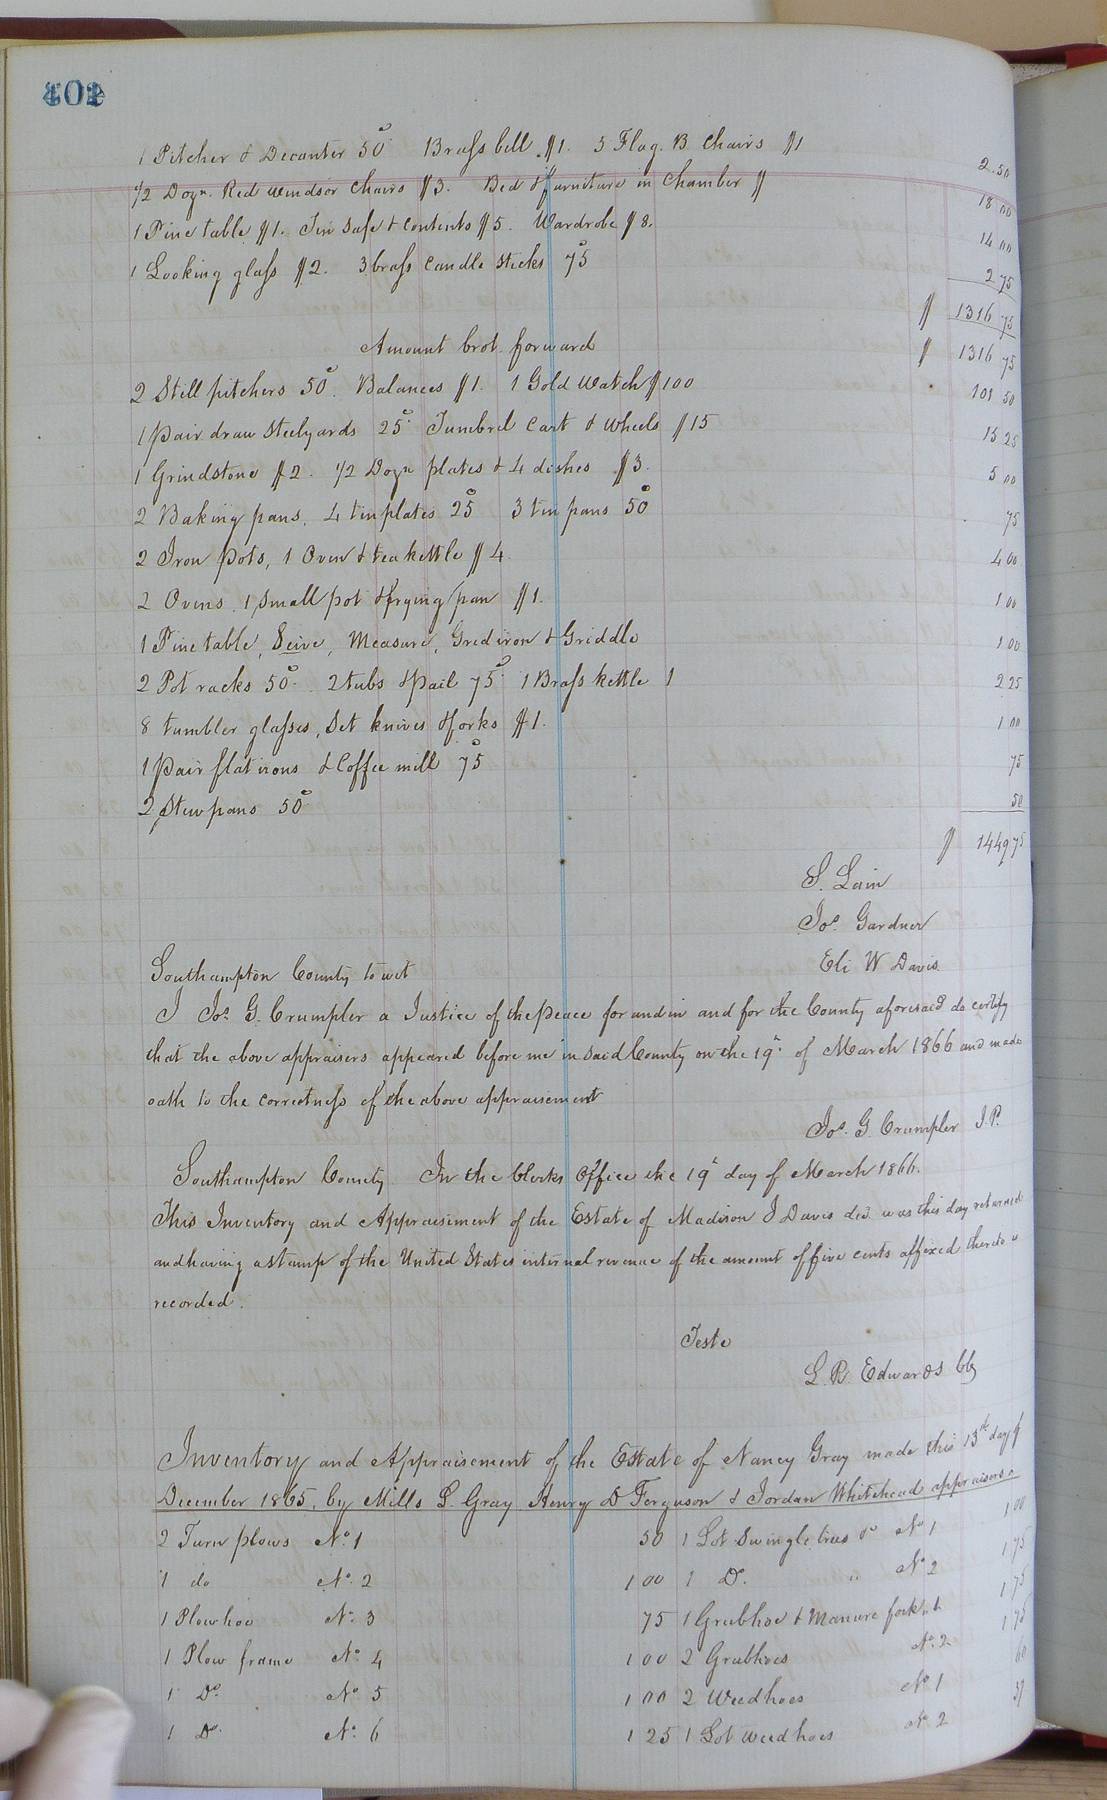 402
1 Pitcher & Decanter 50c Brass bell $1. 5 Flag. B. Chairs $1 2.50
1/2 Dozn. Red Windsor Chairs $3. Bed & furniture in Chamber $ 18 00
1 Pine table $1. Tin Safe & contents $5. Wardrobe $8. 14 00
1 Looking glass $2. 3 brass candle sticks 75c 2 75
$ 1316 75
Amount brot. forward $ 1316 75
2 Still pitchers 50c. Balances $1. 1 Gold Watch $100 101 50
1 Pair draw Steelyards 25c. Tumbrel Cart & Wheels $15 15 25
1 Grindstone $2. 1/2 Dozn plates & 4 dishes $3. 5 00
2 Baking pans, 4 tin plates 25c 3 tin pans 50c 75
2 Iron Pots, 1 Oven & tea kettle $4. 4 00
2 Ovens, 1 Small pot & frying pan $1. 1 00
1 Pine table, Seive, Measure, Grediron & Griddle 1 00
2 Pot racks 50c. 2 tubs & Pail 75c. 1 Brass kettle 1 2 25
8 tumbler glasses, Set knives & forks $1. 1 00
1 Pair flat irons & Coffee mill 75c 75
2 Stew pans 50c 50
$ 1449 75
S. Lain
Jos. Gardner
Eli W Davis
Southampton County to wit
I Jos. G. Crumpler a Justice of the Peace for and in and for the County aforesaid do certify
that the above appraisers appeared before me in said County on the 19th of March 1866 and made
oath to the correctness of the above appraisement
Jos. G. Crumpler J.P.
Southampton County. In the Clerks Office the 19th day of March 1866.
This Inventory and Appraisement of the Estate of Madison J Davis decd was this day returned
and having a stamp of the United States internal revenue of the amount of five cents affixed thereto is
recorded.
Teste
L. R. Edwards Clk
Inventory and Appraisement of the Estate of Nancy Gray made this 13th day of
December 1865, by Mills L. Gray Henry D Ferguson & Jordan Whitehead appraisers.
2 Turn plows No. 1 50 1 Lot Swingle trees No 1 1 00
1 do No. 2 1 00 1 Do. " No 2 1 75
1 Plow hoe No. 3 75 1 Grubhoe & Manure fork 1 75
1 Plow frame No. 4 1 00 2 Grubhoes No. 2 1 75
1 Do. No. 5 1 00 2 Weedhoes No 1 60
1 Do. No. 6 1 25 1 Lot weedhoes No. 2 37